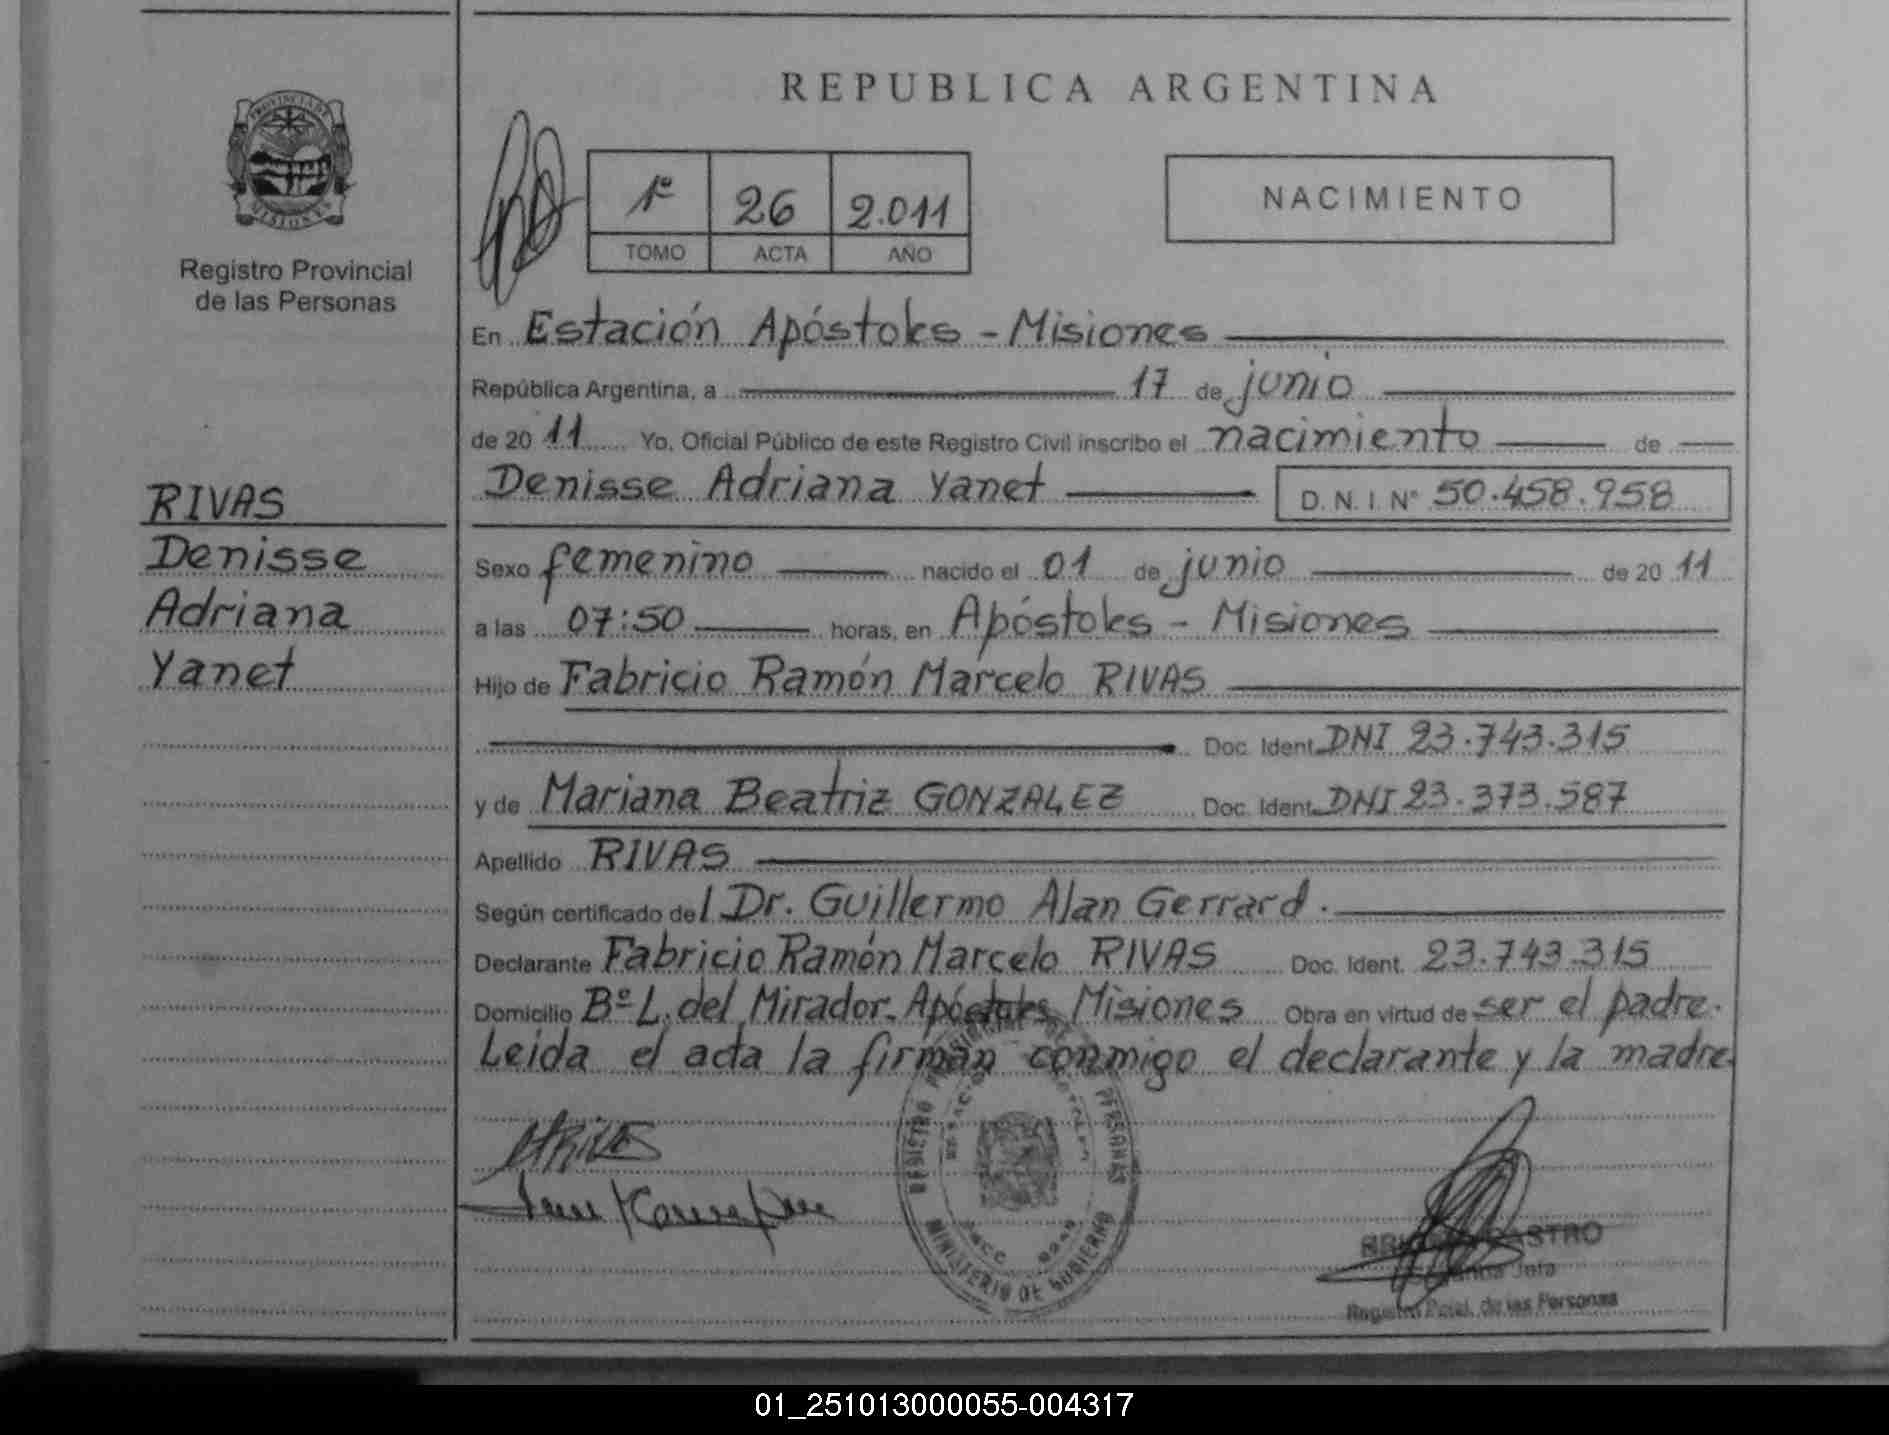 REPUBLICA ARGENTINA
PROVINCIA DE
MISIONES
Registro Provincial
de las Personas
1º 26 2.011
TOMO ACTA AÑO
NACIMIENTO
En Estación Apóstoles - Misiones
República Argentina, a 17 de junio
de 20 11 Yo, Oficial Público de este Registro Civil inscribo el nacimiento de
Denisse Adriana Yanet D. N. I. N° 50.458.958
RIVAS
Denisse
Adriana
Yanet
Sexo femenino nacido el 01 de junio de 20 11
a las 07:50 horas, en Apóstoles - Misiones
Hijo de Fabricio Ramón Marcelo RIVAS
Doc. Ident. DNI 23.743.315
y de Mariana Beatriz GONZALEZ Doc. Ident. DNI 23.373.587
Apellido RIVAS
Según certificado del Dr. Guillermo Alan Gerrard.
Declarante Fabricio Ramón Marcelo RIVAS Doc. Ident. 23.743.315
Domicilio Bº L. del Mirador. Apóstoles Misiones Obra en virtud de ser el padre.
Leida el acta la firman conmigo el declarante y la madre.
REGISTRO PERSONAS
MINISTERIO DE GOBIERNO
Jefa
Registro Pcial. de las Personas
01_251013000055-004317